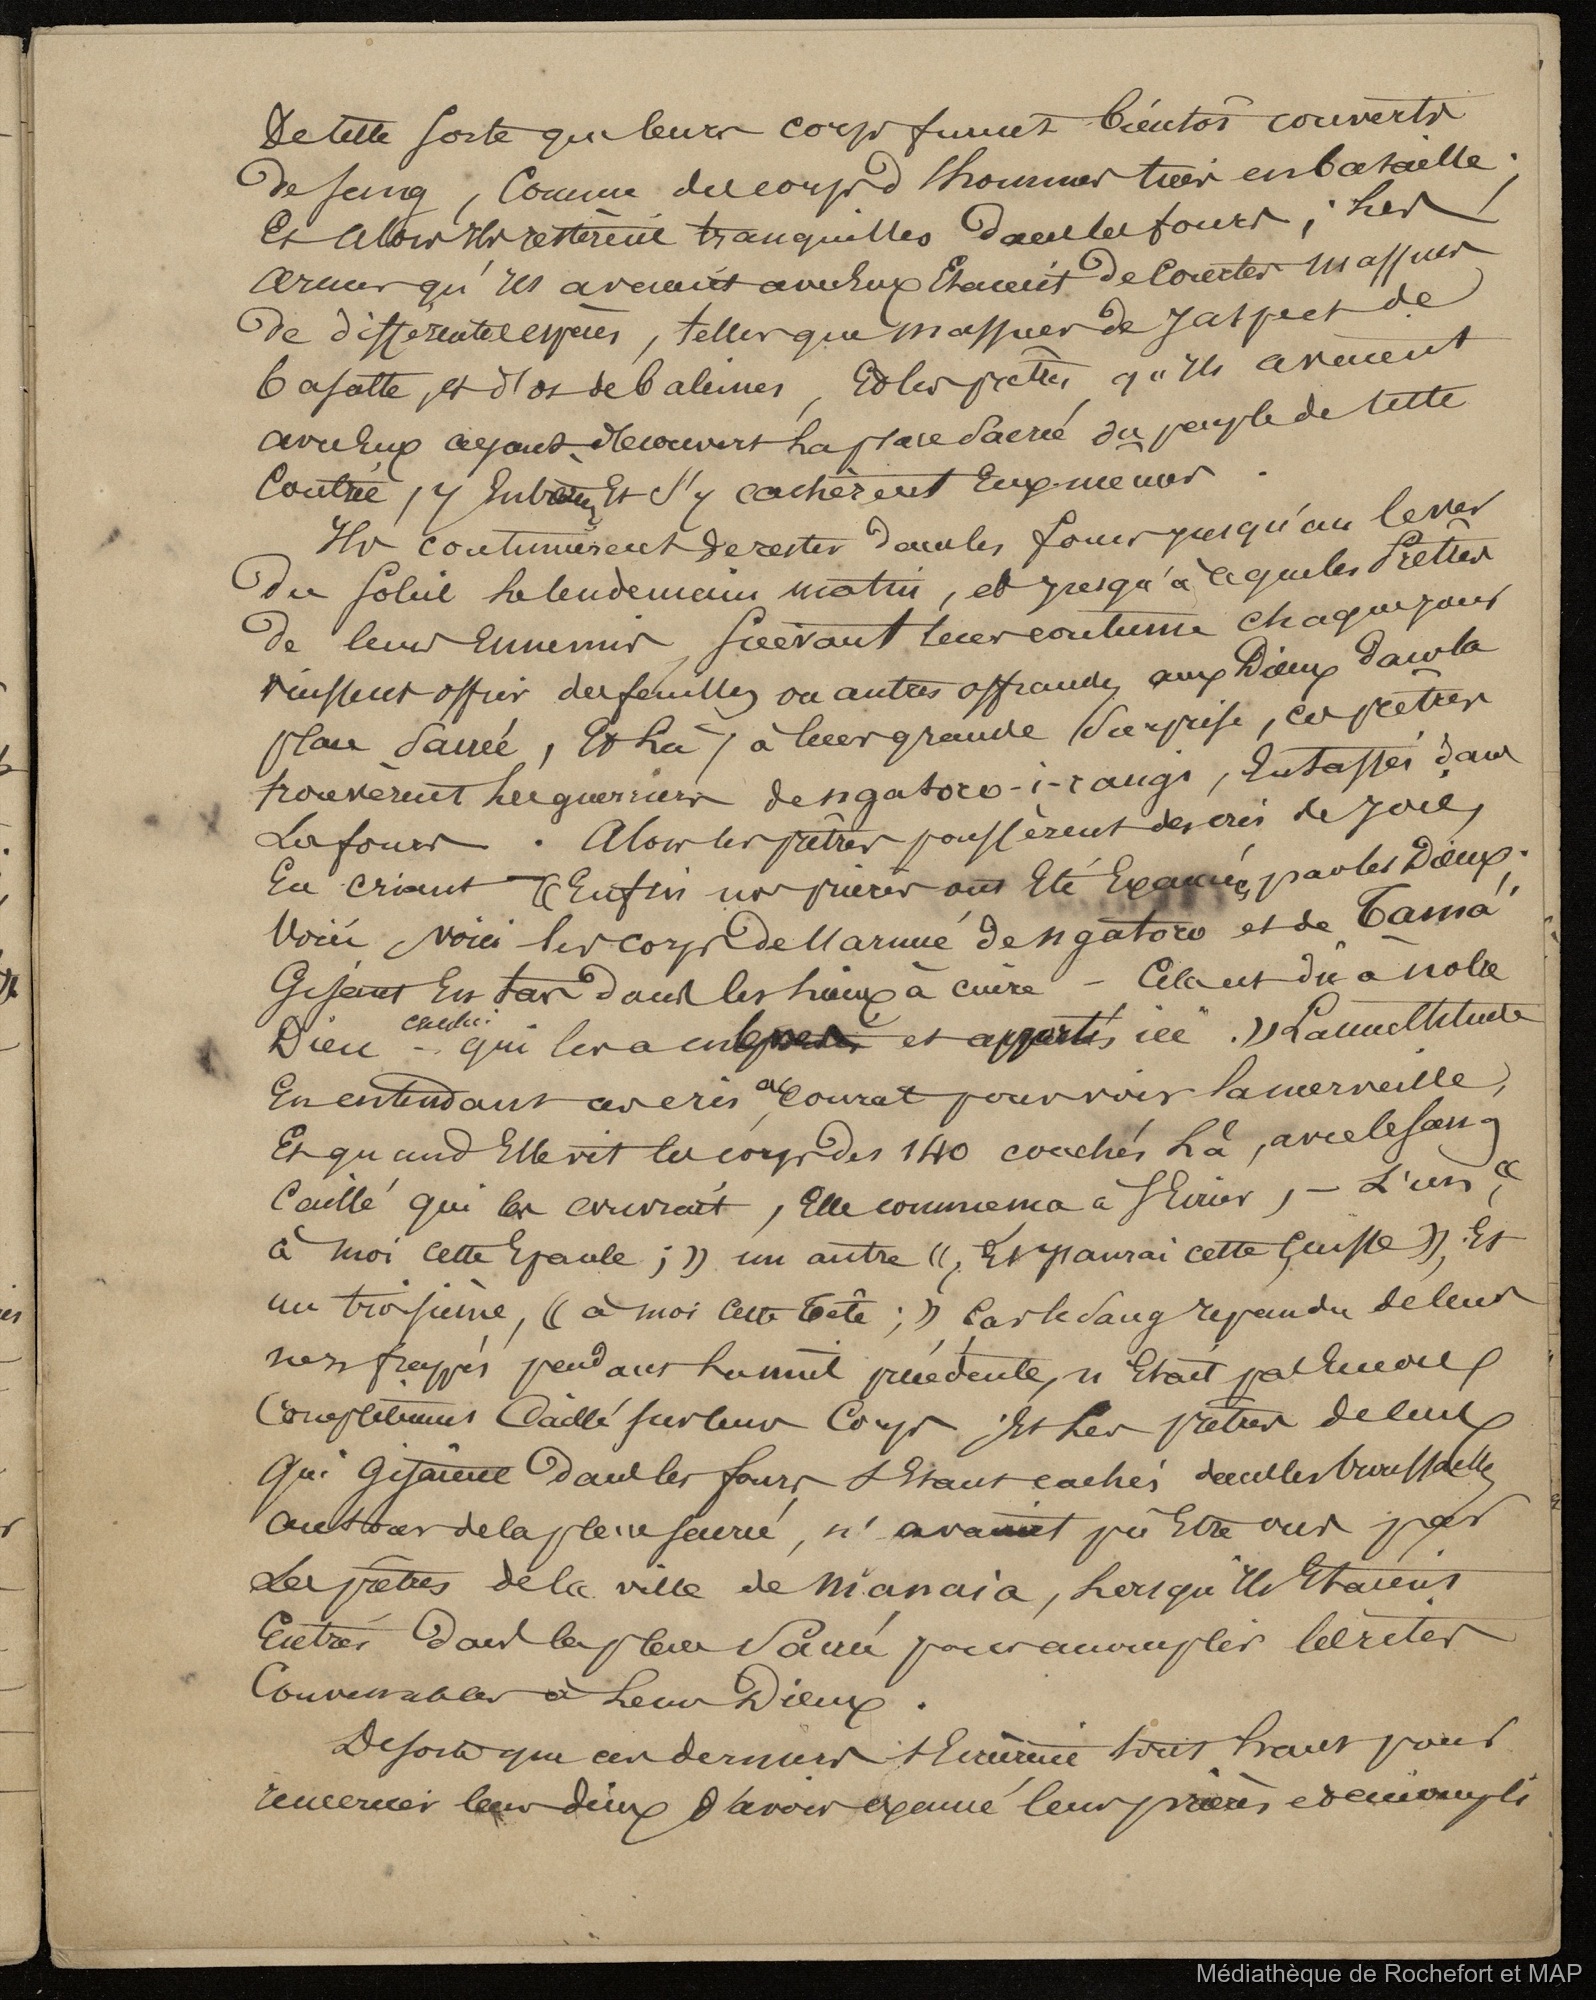 De telle sorte que leurs corps furent bientôt couverts
De sang, Comme des corps d'hommes tués en bataille ;
Et Alors Ils restèrent tranquilles dans les fours ; Les
armes qu'Ils avaient avec Eux Etaient De Courtes massues
De différentes espèces, telles que massues de Jaspe et de
basalte, et d'os de baleines, Et les prêtres qu'Ils avaient
avec Eux ayant découvert La place Sacrée du peuple de cette
Contrée, y Et s'y cachèrent Eux-mêmes.
Ils continuèrent de rester dans les fours jusqu'au lever
Du Soleil Le lendemain matin, et jusqu'à ce que les Prêtres
De leurs Ennemis, Suivant leur coutume chaque jour
vinssent offrir des feuilles ou autres offrandes aux Dieux dans la
place Sacrée, Et Là, à leur grande Surprise, ces prêtres
trouvèrent Les guerriers de ngatoro-i-rangi, Entassés dans
Les fours. Alors les prêtres poussèrent des cris de Joie,
En criant « Enfin nos prières ont Eté Exaucées par les Dieux.
Voici, voici les corps de l'armée de ngatoro et de Tama
Gisant En tas dans les lieux à cuire – Cela est dû à notre
Dieu – qui les a et apportés ici. » La multitude
En entendant ces cris accourut pour voir la merveille,
Et quand Elle vit les corps des 140 couchés Là, avec le sang
Caillé qui les couvrait, Elle commença à s'Ecrier, – L'un, «
à moi cette Epaule ; » un autre «, Et J'aurai cette Cuisse », Et
un troisième, « à moi cette tête ; » Car le Sang répandu de leurs
nez frappés pendant La nuit précédente, n'Etait pas Encore
Complètement Caillé sur leurs Corps ; Et Les prêtres de ceux
Qui Gisaient Dans les fours s'Etant cachés dans les broussailles
autour de la place sacrée, n'avaient pû Etre vus par
Les prêtres de la ville de Manaia, Lorsqu'Ils Etaient
Entrés Dans la place Sacrée pour accomplir les rites
Convenables à Leurs Dieux.
De sorte que ces derniers s'Ecrièrent tout haut pour
remercier leurs dieux d'avoir exaucé leurs prières et accompli
Médiathèque de Rochefort et MAP